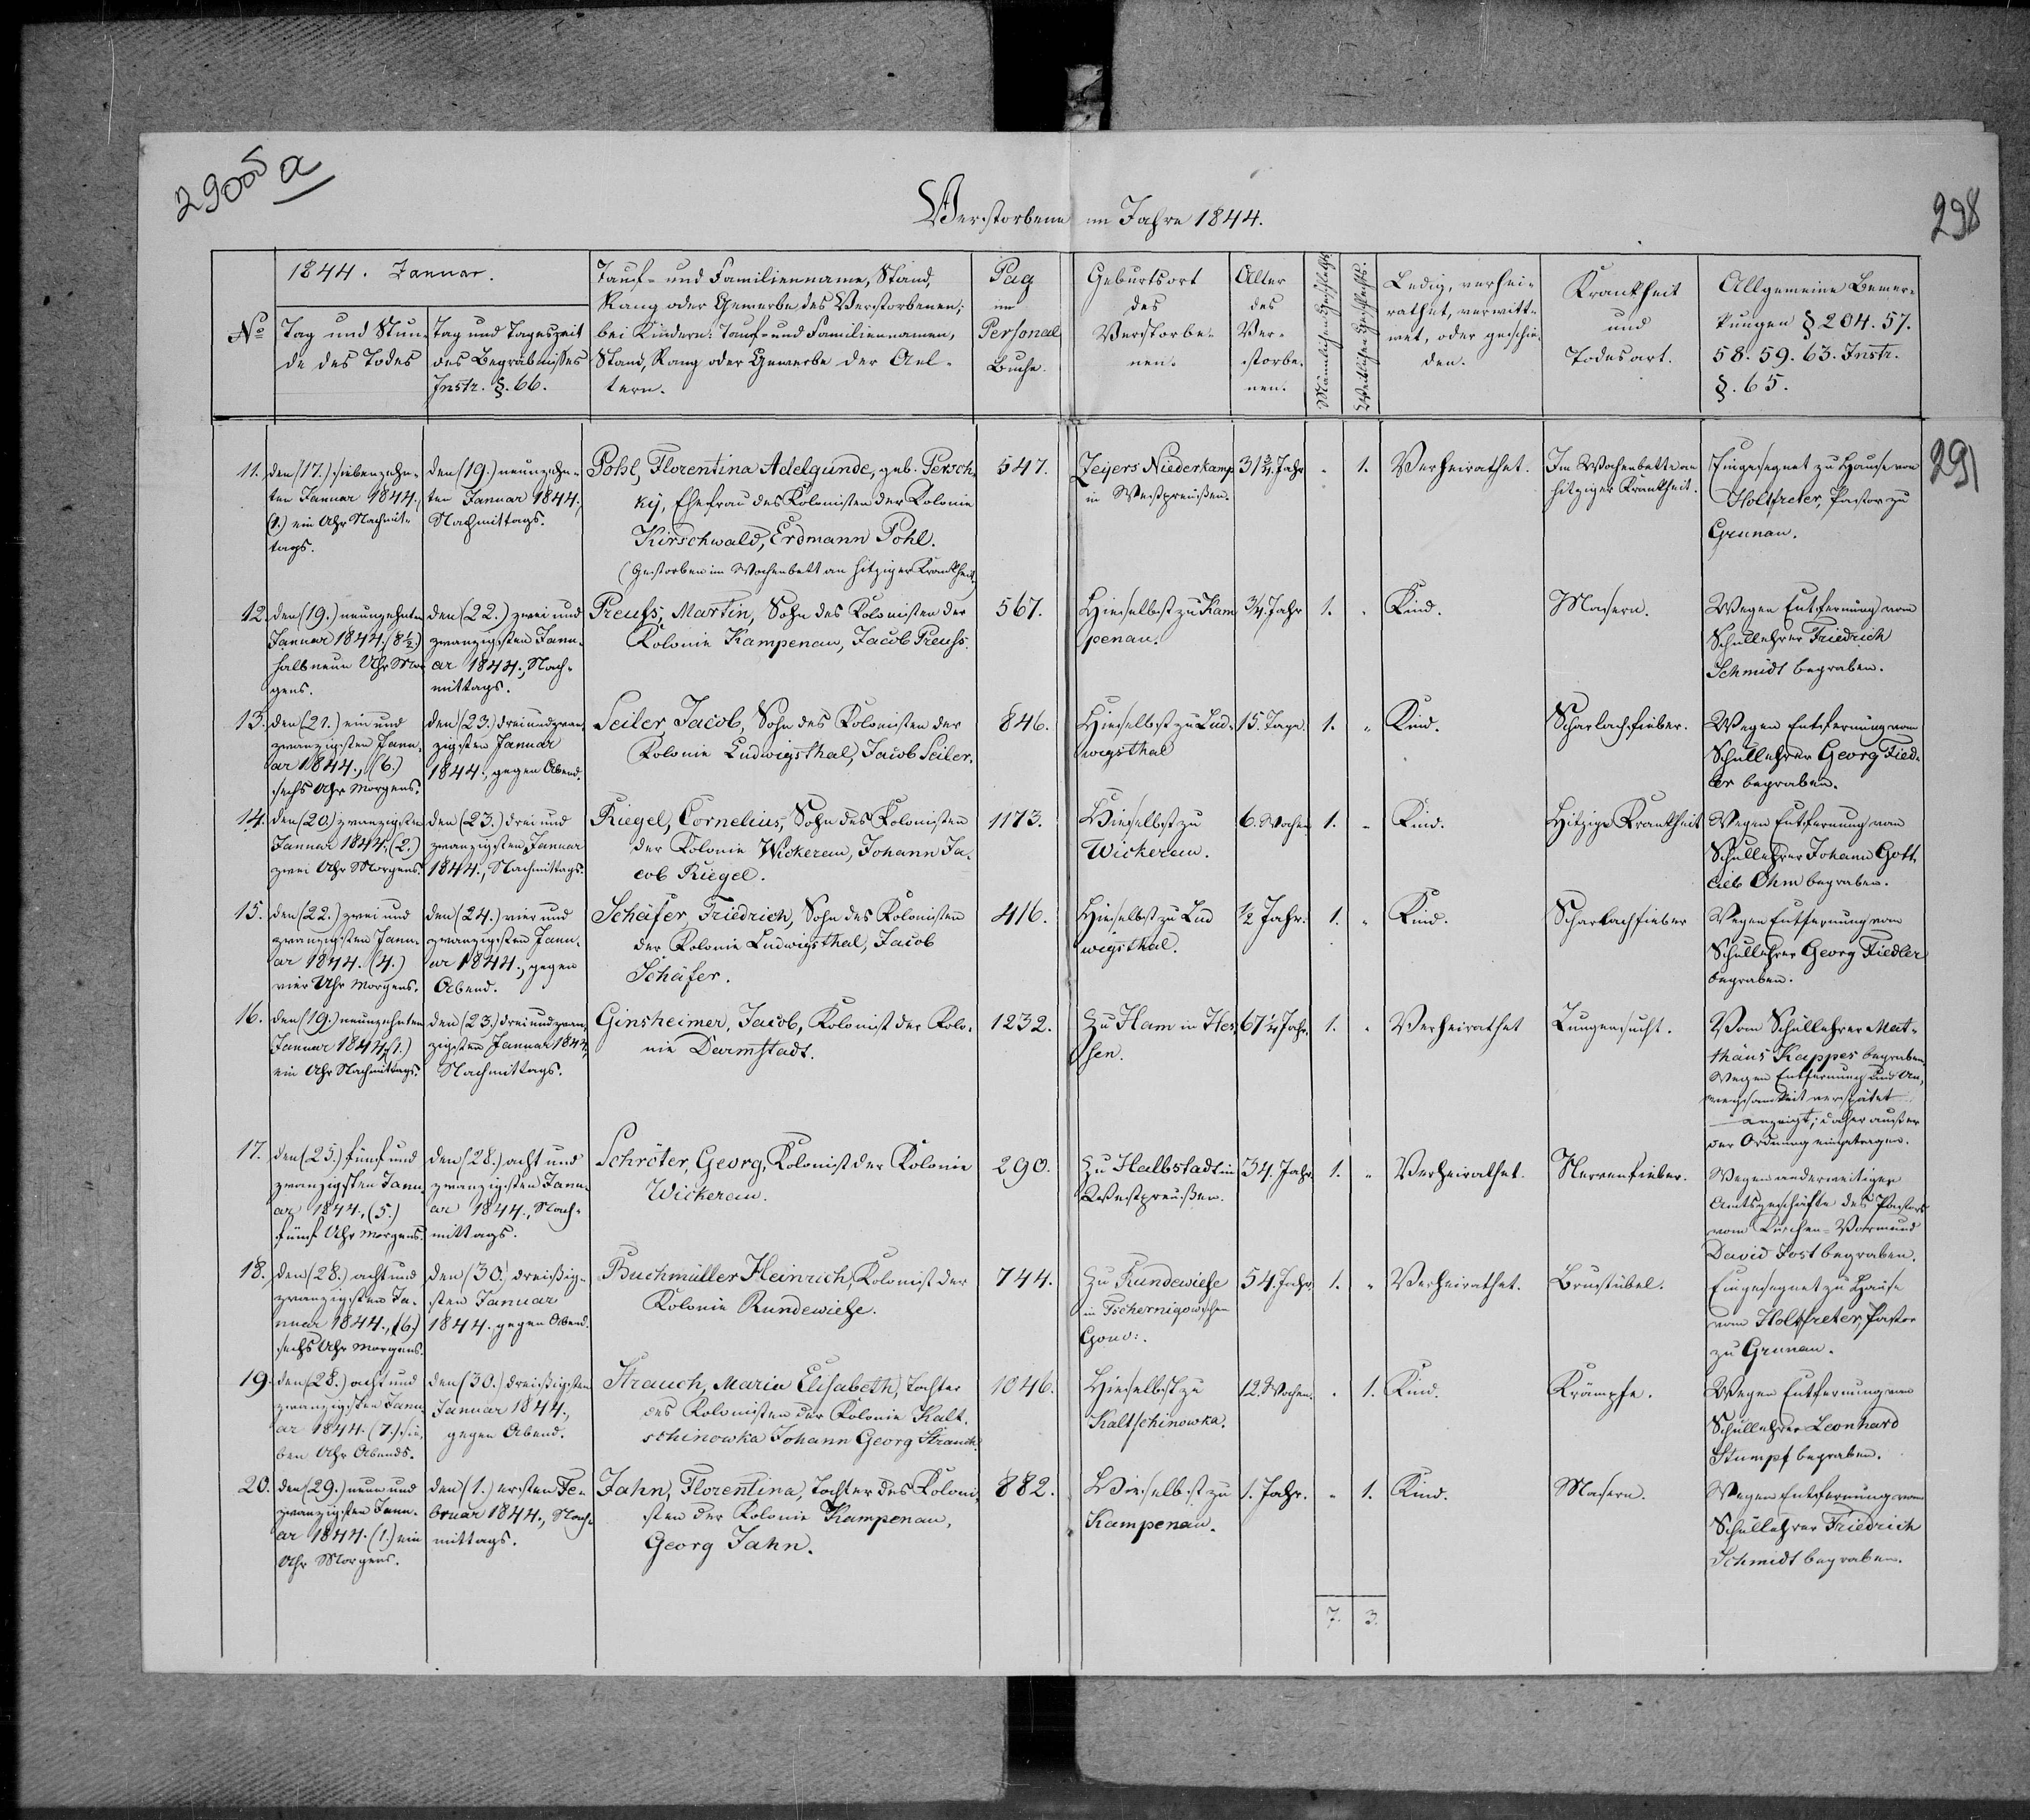 2905 a
298
Verstorbene im Jahre 1844.
No
1844. Januar.
Tag und Stun-
de des Todes
Tag und Tageszeit
des Begräbnisses
Instr. §. 66.
Tauf- und Familienname, Stand,
Rang oder Gewerbe des Verstorbenen;
bei Kindern: Tauf- und Familiennamen,
Stand, Rang oder Gewerbe der Ael-
tern.
Pag
im
Personal
Buche.
Geburtsort
des
Verstorbe-
nen.
Alter
des
Ver-
storbe-
nen.
Männlichen Geschlechts.
Weiblichen Geschlechts.
Ledig, verhei-
rathet, verwitt-
wet, oder geschie-
den.
Krankheit
und
Todesart.
Allgemeine Bemer-
kungen § 204. 57.
58. 59. 63. Instr.
§. 65.
291
11.
den (17.) siebenzehn-
ten Januar 1844.,
(1.) ein Uhr Nachmit-
tags.
den (19.) neunzehn-
ten Januar 1844.,
Nachmittags.
Pohl, Florentina Adelgunde, geb. Persch-
ky, Ehefrau des Kolonisten der Kolonie
Kirschwald, Erdmann Pohl.
(Gestorben im Wochenbett an hitziger Krankheit)
547.
Zeijers Niederkamp
in Westpreußen.
31 3/4. Jahr
"
1.
Verheirathet.
Im Wochenbette an
hitziger Krankheit.
Eingesegnet zu Hause von
Holtfreter, Pastor zu
Grunau.
12.
den (19.) neunzehnten
Januar 1844., (8 1/2.)
halb neun Uhr Mor-
gens.
den (22.) zwei und
zwanzigsten Janu-
ar 1844., Nach-
mittags.
Preuß, Martin, Sohn des Kolonisten der
Kolonie Kampenau, Jacob Preuß.
567.
Hieselbst zu Kam
penau.
3/4. Jahr
1.
"
Kind.
Masern.
Wegen Entfernung vom
Schullehrer Friedrich
Schmidt begraben.
13.
den (21.) ein und
zwanzigsten Janu-
ar 1844., (6.)
sechs Uhr Morgens.
den (23.) drei und zwan-
zigsten Januar
1844., gegen Abend.
Seiler Jacob, Sohn des Kolonisten der
Kolonie Ludwigsthal, Jacob Seiler.
846.
Hieselbst zu Lud-
wigsthal
15. Tage.
1.
"
Kind.
Scharlachfieber.
Wegen Entfernung vom
Schullehrer Georg Fied-
ler begraben.
14.
den (20.) zwanzigsten
Januar 1844., (2.)
zwei Uhr Morgens.
den (23.) drei und
zwanzigsten Januar
1844., Nachmittags.
Riegel, Cornelius, Sohn des Kolonisten
der Kolonie Wickerau, Johann Ja-
cob Riegel.
1173.
Hieselbst zu
Wickerau.
6. Wochen
1.
"
Kind.
Hitzige Krankheit
Wegen Entfernung vom
Schullehrer Johann Gott
lieb Ohm begraben.
15.
den (22.) zwei und
zwanzigsten Janu-
ar 1844. (4.)
vier Uhr Morgens.
den (24.) vier und
zwanzigsten Janu-
ar 1844., gegen
Abend.
Schäfer, Friedrich, Sohn des Kolonisten
der Kolonie Ludwigsthal, Jacob
Schäfer.
416.
Hieselbst zu Lud
wigsthal.
1/2 Jahr.
1.
"
Kind.
Scharlachfieber
Wegen Entfernung vom
Schullehrer Georg Fiedler
begraben.
16.
den (19.) neunzehnten
Januar 1844., (1.)
ein Uhr Nachmittags.
den (23.) drei und zwan-
zigsten Januar 1844.,
Nachmittags.
Ginsheimer, Jacob, Kolonist der Kolo-
nie Darmstadt.
1232.
Zu Ham in Hes-
sen.
67 1/4 Jahr.
1.
"
Verheirathet
Lungensucht.
Vom Schullehrer Mat-
thäus Kappes begraben.
Wegen Entfernung und
verspätet
angezeigt; daher außer
der Ordnung eingetragen.
17.
den (25.) fünf und
zwanzigsten Janu-
ar 1844., (5.)
fünf Uhr Morgens.
den (28.) acht und
zwanzigsten Janu-
ar 1844., Nach-
mittags.
Schröter, Georg, Kolonist der Kolonie
Wickerau.
290.
Zu Halbstadt in
Westpreußen.
34. Jahr.
1.
"
Verheirathet.
Nervenfieber.
Wegen anderweitiger
Amtsgeschäfte des Pastors
vom Kirchen-Vormund
David Jost begraben.
18.
den (28.) acht und
zwanzigsten Ja-
nuar 1844., (6.)
sechs Uhr Morgens.
den (30.) dreißig-
sten Januar
1844. gegen Abend.
Buchmüller Heinrich, Kolonist der
Kolonie Rundewiese.
744.
Zu Rundewiese
in Tschernigowschen
Gouv:.
54. Jahr.
1.
"
Verheirathet.
Brustübel.
Eingesegnet zu Hause
vom Holtfreter, Pastor
zu Grunau.
19.
den (28.) acht und
zwanzigsten Janu-
ar 1844. (7.) sie-
ben Uhr Abends.
den (30.) dreißigsten
Januar 1844.,
gegen Abend.
Strauch, Maria Elisabeth, Tochter
des Kolonisten der Kolonie Kalt-
schinowka Johann Georg Strauch.
1046.
Hieselbst zu
Kaltschinowka.
12. Wochen.
"
1.
Kind.
Krämpfe.
Wegen Entfernung vom
Schullehrer Leonhard
Stumpf begraben.
20.
den (29.) neun und
zwanzigsten Janu-
ar 1844. (1.) ein
Uhr Morgens.
den (1.) ersten Fe-
bruar 1844., Nach-
mittags.
Jahn, Florentina, Tochter des Koloni-
sten der Kolonie Kampenau,
Georg Jahn.
882.
Hieselbst zu
Kampenau.
1. Jahr.
"
1.
Kind.
Masern.
Wegen Entfernung vom
Schullehrer Friedrich
Schmidt begraben.
7.
3.